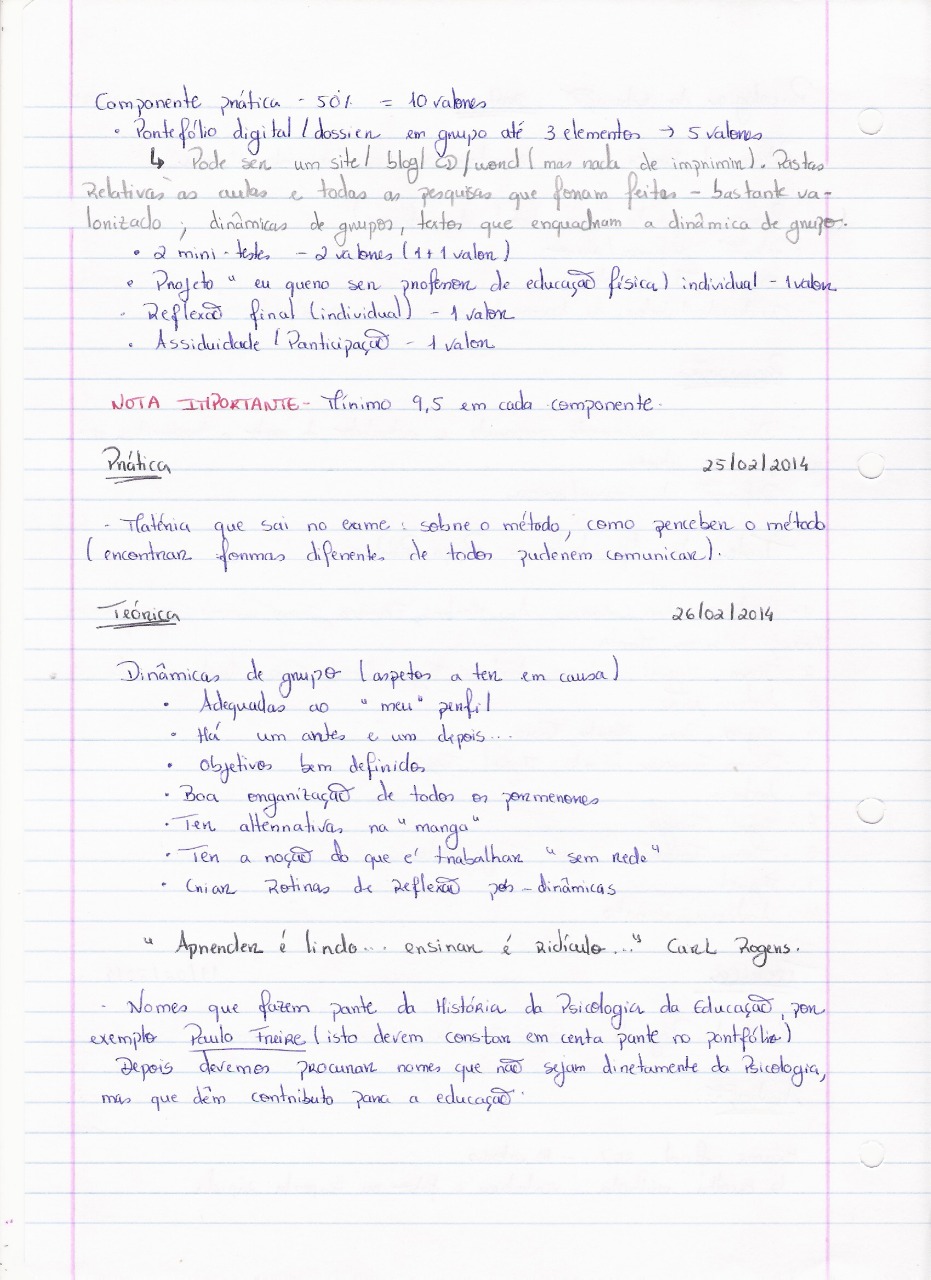 Componente prática - 50% = 10 valores
• Portefólio digital / dossier em grupo até 3 elementos → 5 valores
↳ Pode ser um site / blog / CD / word (mas nada de imprimir). Pastas
Relativas às aulas e todas as pesquisas que foram feitas - bastante va-
lorizado; dinâmicas de grupos, textos que enquadram a dinâmica de grupo.
• 2 mini-testes - 2 valores (1+1 valor)
• Projeto " eu quero ser professor de educação física) individual - 1 valor
• Reflexão final (individual) - 1 valor
• Assiduidade / Participação - 1 valor
NOTA IMPORTANTE - Mínimo 9,5 em cada componente.
Prática 25/02/2014
- Matéria que sai no exame: sobre o método, como perceber o método
(encontrar formas diferentes de todos puderem comunicar).
Teórica 26/02/2014
Dinâmicas de grupo (aspetos a ter em causa)
• Adequadas ao "meu" perfil
• Há um antes e um depois...
• Objetivos bem definidos
• Boa organização de todos os pormenores
• Ter alternativas na "manga"
• Ter a noção do que é trabalhar "sem rede"
• Criar Rotinas de Reflexão pós-dinâmicas
" Aprender é lindo... ensinar é Ridículo..." Carl Rogers.
- Nomes que fazem parte da História da Psicologia da Educação, por
exemplo Paulo Freire (isto devem constar em certa parte no portfólio)
Depois devemos procurar nomes que não sejam diretamente da Psicologia,
mas que dêm contributo para a educação.